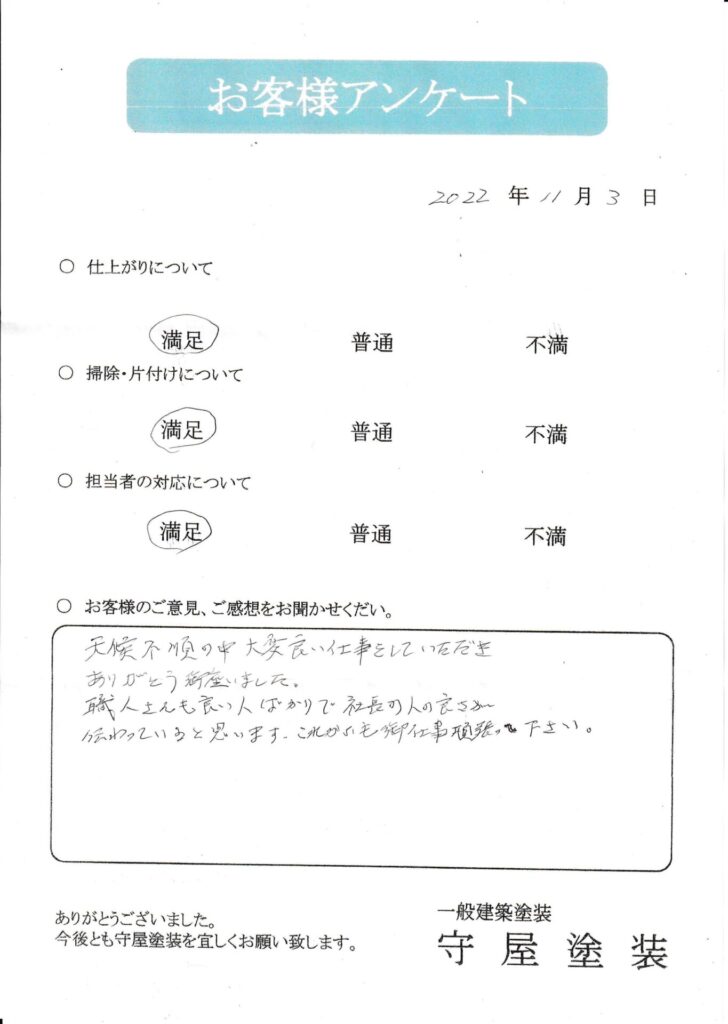 お客様アンケート
2022 年 11 月 3 日
○ 仕上がりについて
満足 普通 不満
○ 掃除・片付けについて
満足 普通 不満
○ 担当者の対応について
満足 普通 不満
○ お客様のご意見、ご感想をお聞かせくだい。
天候不順の中大変良い仕事をしていただき
ありがとう御座いました。
職人さんも良い人ばかりで社長の人の良さが
伝わっていると思います。これからも御仕事頑張って下さい。
ありがとうございました。
今後とも守屋塗装を宜しくお願い致します。
一般建築塗装
守屋塗装